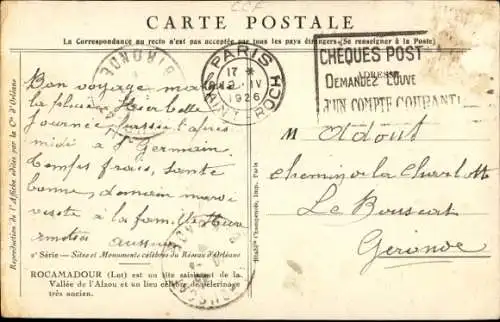 CARTE POSTALE
La Correspondance au recto n'est pas acceptée par tous les pays étrangers (Se renseigner à la Poste)
CHÈQUES POST
DEMANDEZ L'OUVE
D'UN COMPTE COURANT
ADRESSE
PARIS
17 *
IV
1926
GIRONDE
Bon voyage
la pluie
journée passée l'après
midi à St Germain
temps frais, santé
bonne, demain mardi
visite à la famille
M Oddout
chemin de la
Le Bouscat
Gironde
2e Série — Sites et Monuments célèbres du Réseau d'Orléans
ROCAMADOUR (Lot) est un site saisissant de la
Vallée de l'Alzou et un lieu célèbre de pèlerinage
très ancien.
Reproduction de l'Affiche éditée par la Cie d'Orléans
Champenois, Imp. Paris